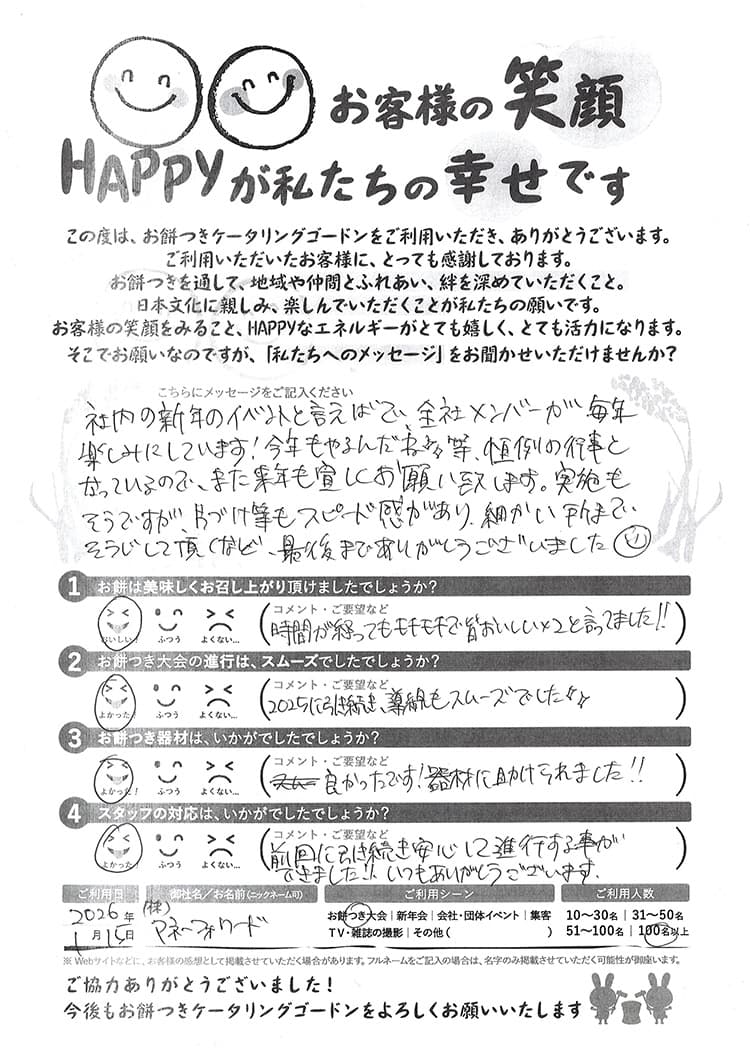 お客様の笑顔
HAPPYが私たちの幸せです
この度は、お餅つきケータリングゴードンをご利用いただき、ありがとうございます。
ご利用いただいたお客様に、とっても感謝しております。
お餅つきを通して、地域や仲間とふれあい、絆を深めていただくこと。
日本文化に親しみ、楽しんでいただくことが私たちの願いです。
お客様の笑顔をみること、HAPPYなエネルギーがとても嬉しく、とても活力になります。
そこでお願いなのですが、「私たちへのメッセージ」をお聞かせいただけませんか？
こちらにメッセージをご記入ください
社内の新年のイベントと言えばで、全社メンバーが毎年
楽しみにしています！今年もやるんだねぇ等、恒例の行事と
なっているので、また来年も宜しくお願い致します。実施も
そうですが、片づけ等もスピード感があり、細かい所まで、
そうじして頂くなど、最後までありがとうございました
1 お餅は美味しくお召し上がり頂けましたでしょうか？
コメント・ご要望など
おいしい! ふつう よくない... (時間が経ってもモチモチで皆おいしい×2と言ってました!!)
2 お餅つき大会の進行は、スムーズでしたでしょうか？
コメント・ご要望など
よかった! ふつう よくない... (2025に引き続き、導線もスムーズでした)
3 お餅つき器材は、いかがでしたでしょうか？
コメント・ご要望など
よかった! ふつう よくない... (良かったです！器材に助けられました!!)
4 スタッフの対応は、いかがでしたでしょうか？
コメント・ご要望など
よかった! ふつう よくない... (前回に引き続き安心して進行する事が
できました!! いつもありがとうございます。)
ご利用日 御社名／お名前(ニックネーム可) ご利用シーン ご利用人数
2026年 (株) お餅つき大会｜新年会｜会社・団体イベント｜集客 10〜30名｜31〜50名
1月15日 マネーフォワード TV・雑誌の撮影｜その他( ) 51〜100名｜100名以上
※Webサイトなどに、お客様の感想として掲載させていただく場合があります。フルネームをご記入の場合は、名字のみ掲載させていただく可能性が御座います。
ご協力ありがとうございました！
今後もお餅つきケータリングゴードンをよろしくお願いいたします